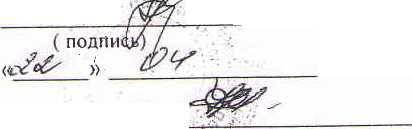 ( подпись)
«22» 04